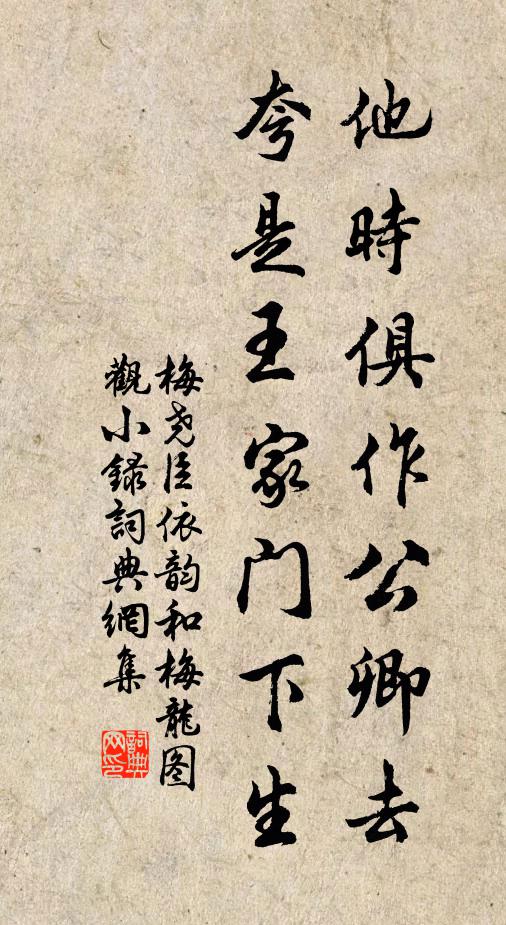 他時俱作公卿去
夸是王家门下生
梅尧臣依韵和梅龍图
觀小録詞典網集
詞典网印